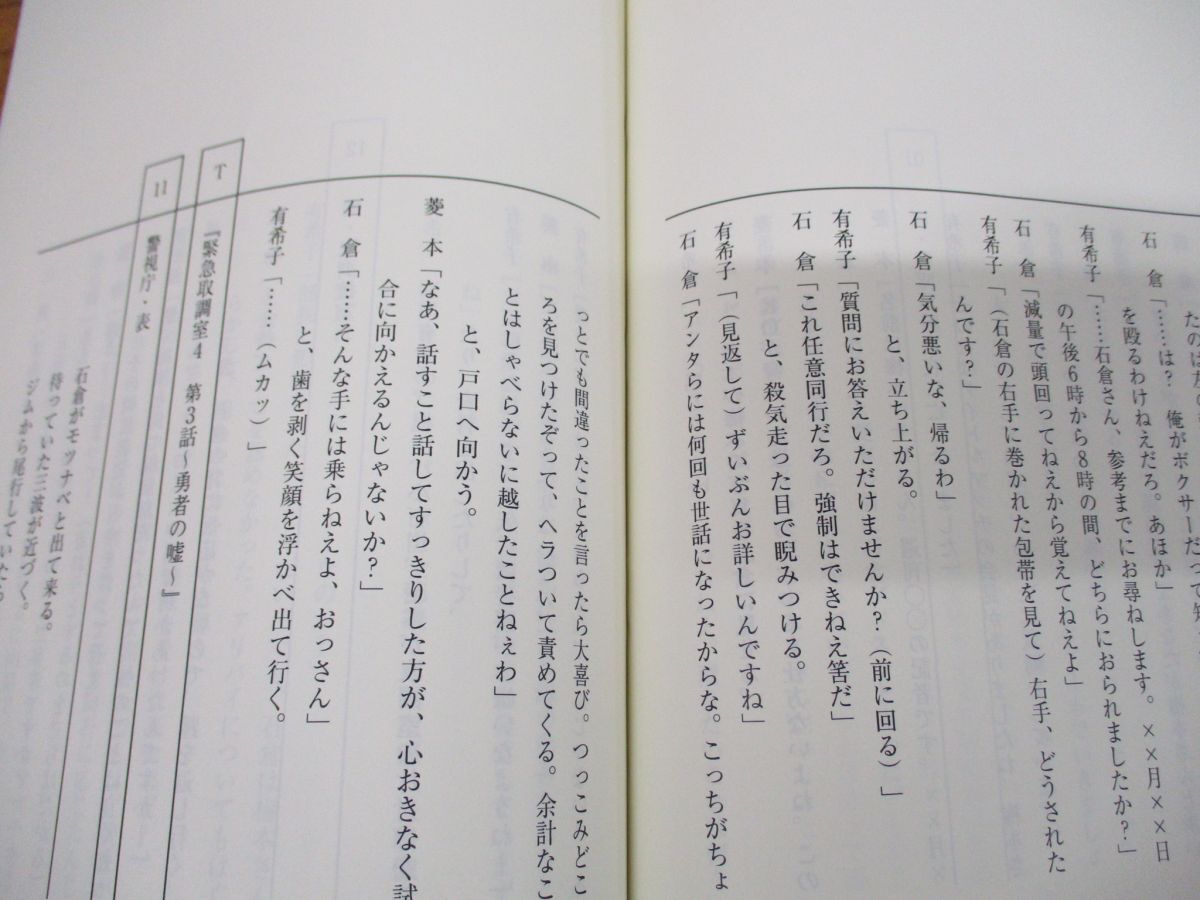 石　倉「……は？　俺がボクサーだって
を殴るわけねえだろ。あほか」
有希子「……石倉さん、参考までにお尋ねします。××月××日
の午後6時から8時の間、どちらにおられましたか？」
石　倉「減量で頭回ってねえから覚えてねえよ」
有希子「（石倉の右手に巻かれた包帯を見て）右手、どうされた
んです？」
石　倉「気分悪いな、帰るわ」
と、立ち上がる。
有希子「質問にお答えいただけませんか？（前に回る）」
石　倉「これ任意同行だろ。強制はできねえ筈だ」
と、殺気走った目で睨みつける。
有希子「（見返して）ずいぶんお詳しいんですね」
石　倉「アンタらには何回も世話になったからな。こっちがちょ
っとでも間違ったことを言ったら大喜び。つっこみどこ
ろを見つけたぞって、ヘラついて責めてくる。余計なこ
とはしゃべらないに越したことねぇわ」
と、戸口へ向かう。
菱　本「なあ、話すこと話してすっきりした方が、心おきなく試
合に向かえるんじゃないか？」
石　倉「……そんな手には乗らねえよ、おっさん」
と、歯を剥く笑顔を浮かべ出て行く。
有希子「……（ムカッ）」
T　『緊急取調室4　第3話～勇者の嘘～』
11　警視庁・表
石倉がモツナベと出て来る。
待っていた三波が近づく。
ジムから尾行していたら